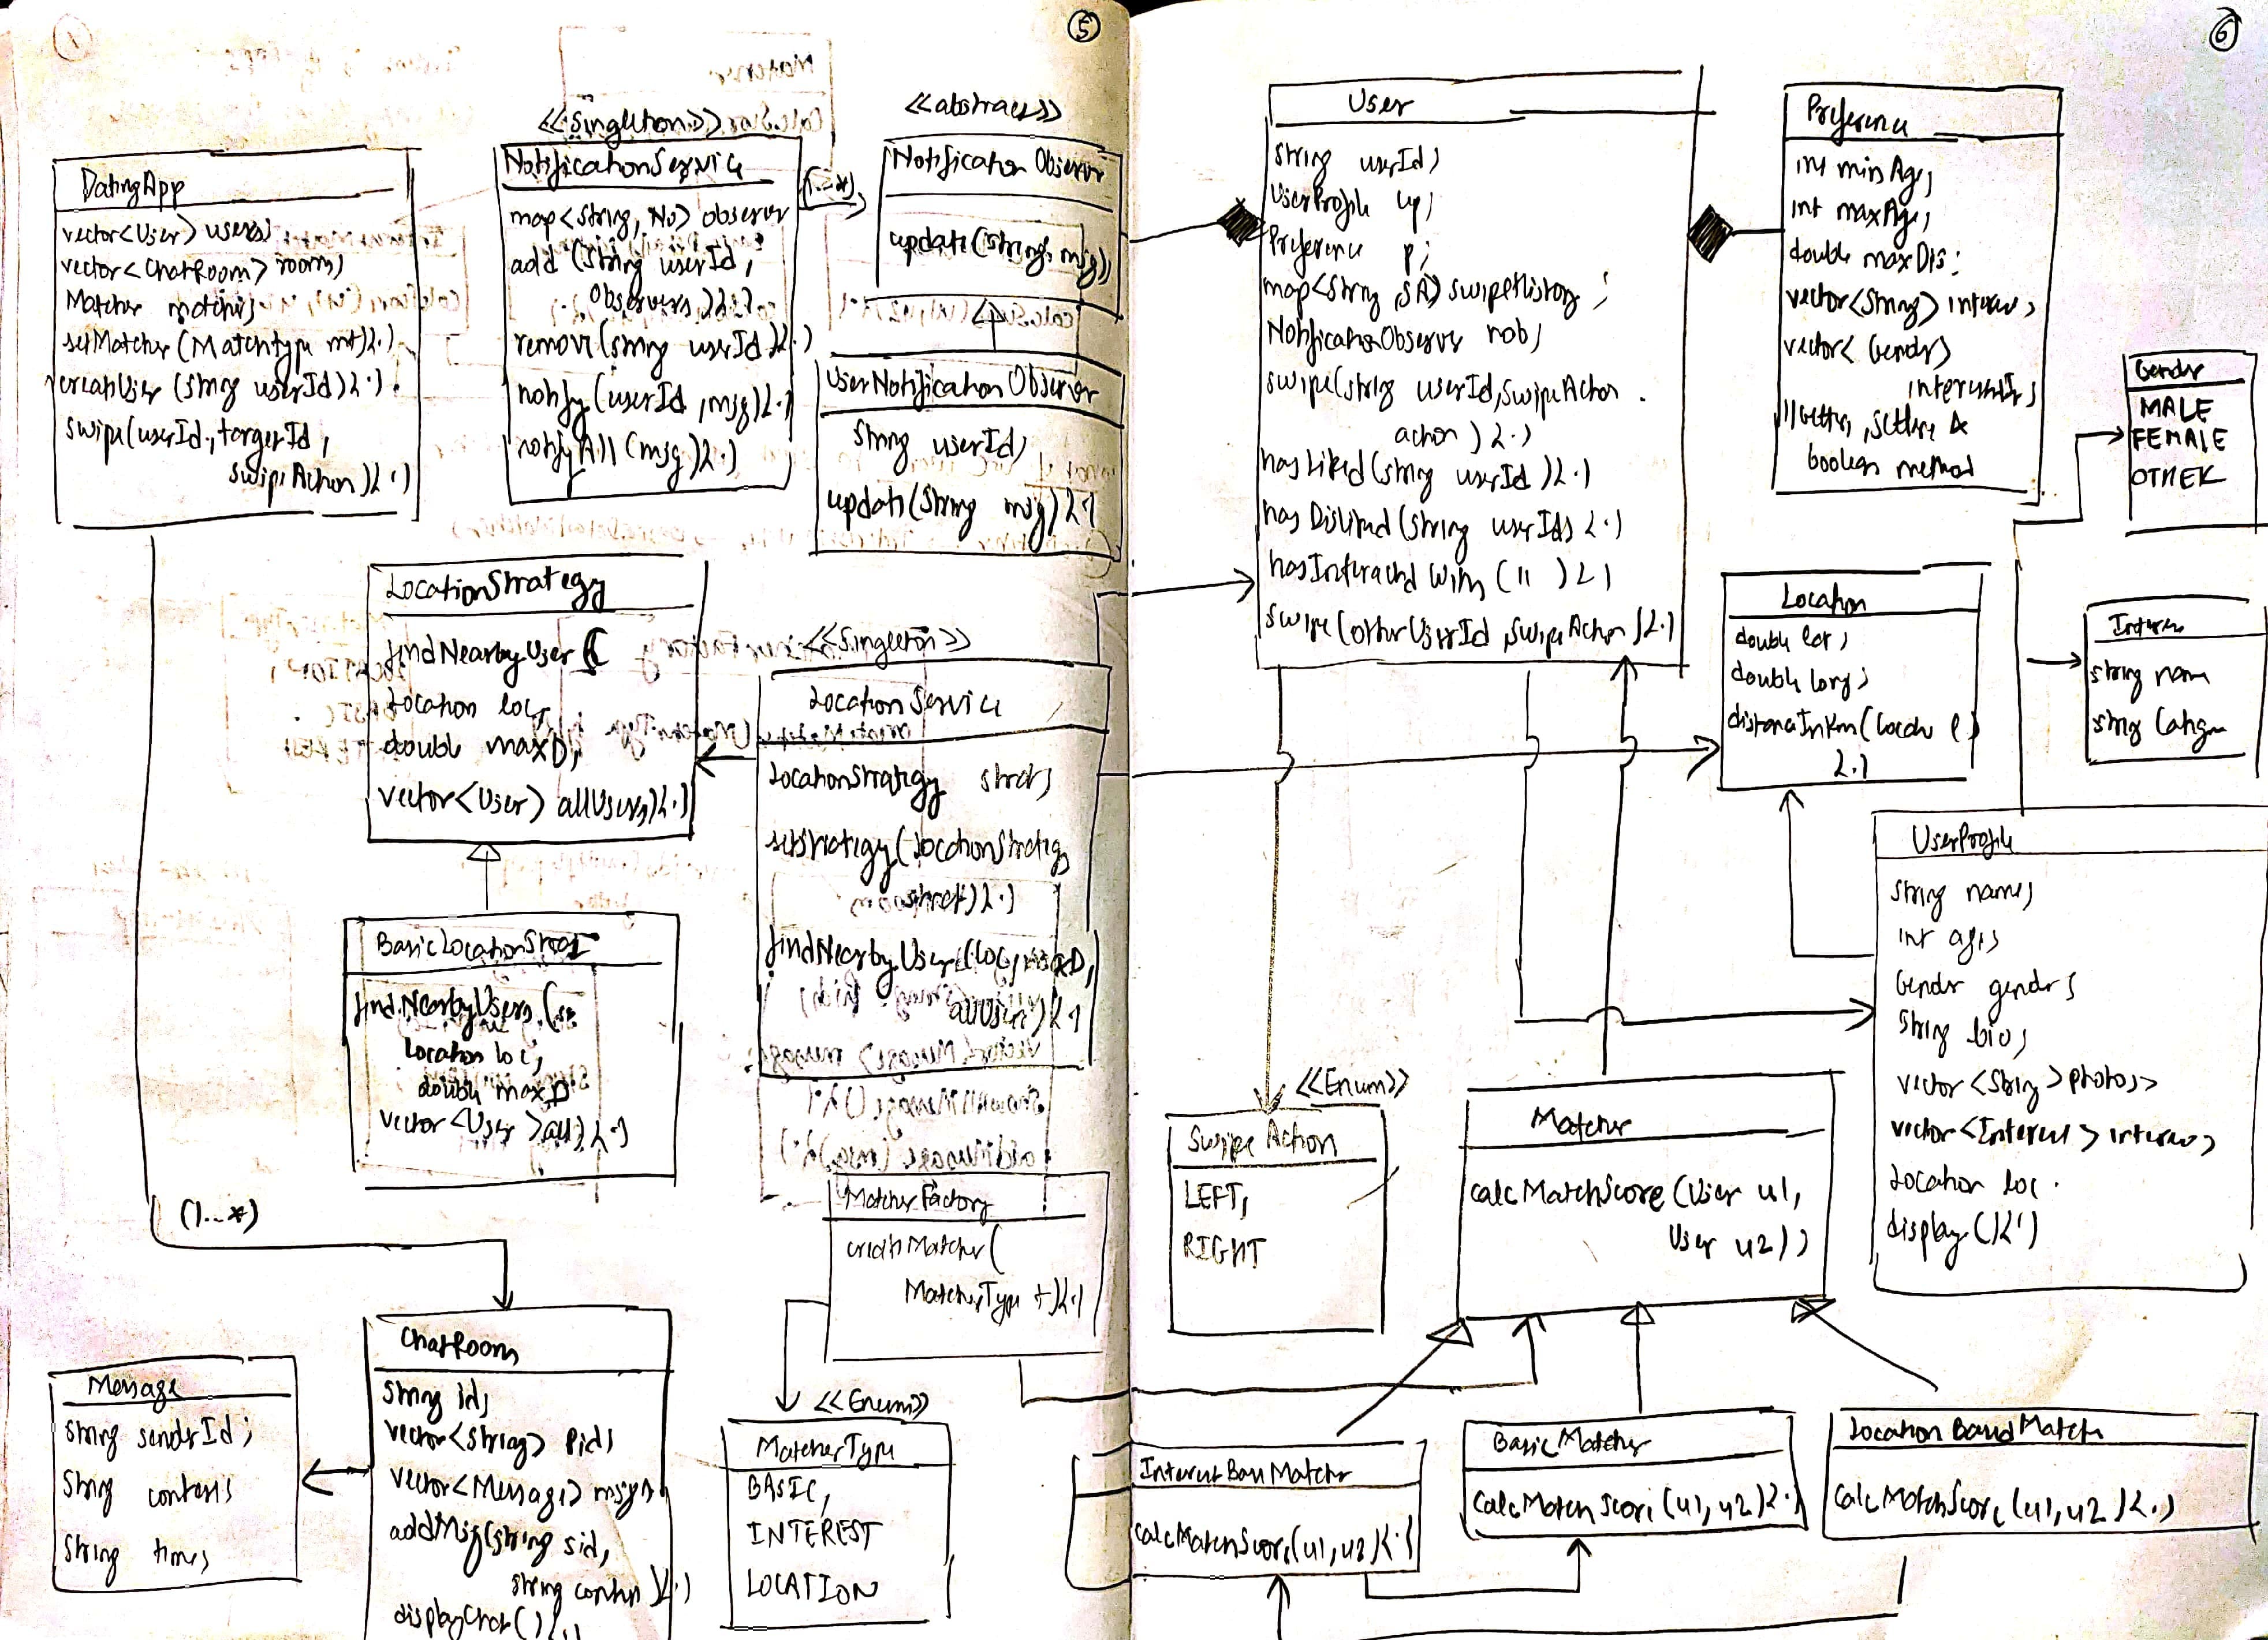 5
<<Singleton>>
<<abstract>>
DatingApp
vector<User> users;
vector<ChatRoom> rooms;
Matcher
setMatcher(Matchtype mt){.}
creatUser (string userId){.}
swipe(userId, targetId,
swipeAction){.}
NotificationService
map<string, No> observer
add (string userId,
Observers){.}
remove(string userId){.}
notify(userId, msg){.}
notifyAll (msg){.}
(1..*)
Notification Observer
update(string msg)
UserNotification Observer
string userId;
update(string msg){.}
LocationStrategy
findNearbyUser (
Location loc,
double maxD,
vector<User> allUsers){.}
<<Singleton>>
Location Service
LocationStrategy strat;
setStrategy(LocationStrategy
strat){.}
findNearbyUser(loc, maxD,
allUser){.}
BasicLocationStrat
findNearbyUsers(
Location loc,
double maxD
vector<User> all){.}
(1..*)
MatcherFactory
creatMatcher(
MatcherType t){.}
ChatRoom
string id;
vector<string> pid;
vector<Message> msgs;
addMsg(string sid,
string contn){.}
displayChat(){.}
Message
string senderId;
string content;
string time;
<<Enum>>
MatcherType
BASIC,
INTEREST
LOCATION
6
User
string userId;
UserProfile up;
Preference p;
map<string, SA> swipeHistory;
NotificationObserver nob;
swipe(string userId, swipeAction
action){.}
hasLiked(string userId){.}
has Disliked(string userId){.}
hasInteracted with (" ){.}
swipe(otherUserId, swipeAction){.}
Preference
int minAge;
int maxAge;
double maxDis;
vector<string> interes;
vector< Gender>
interestIn;
//getters, setters &
boolean method
Gender
MALE
FEMALE
OTHER
Location
double lat;
double long;
distanceInKm(locatn l)
{.}
string nam
UserProfile
string name;
int age;
Gender gender;
string bio;
vector<string>photos;
vector<Interest> interes;
Location loc.
display(){.}
<<Enum>>
Swipe Action
LEFT,
RIGHT
Matcher
calcMatchScore(User u1,
User u2);
calcMatchScore(u1, u2){.}
BasicMatcher
calcMatchScore(u1, u2){.}
Location Based Match
calcMatchScore(u1, u2){.}